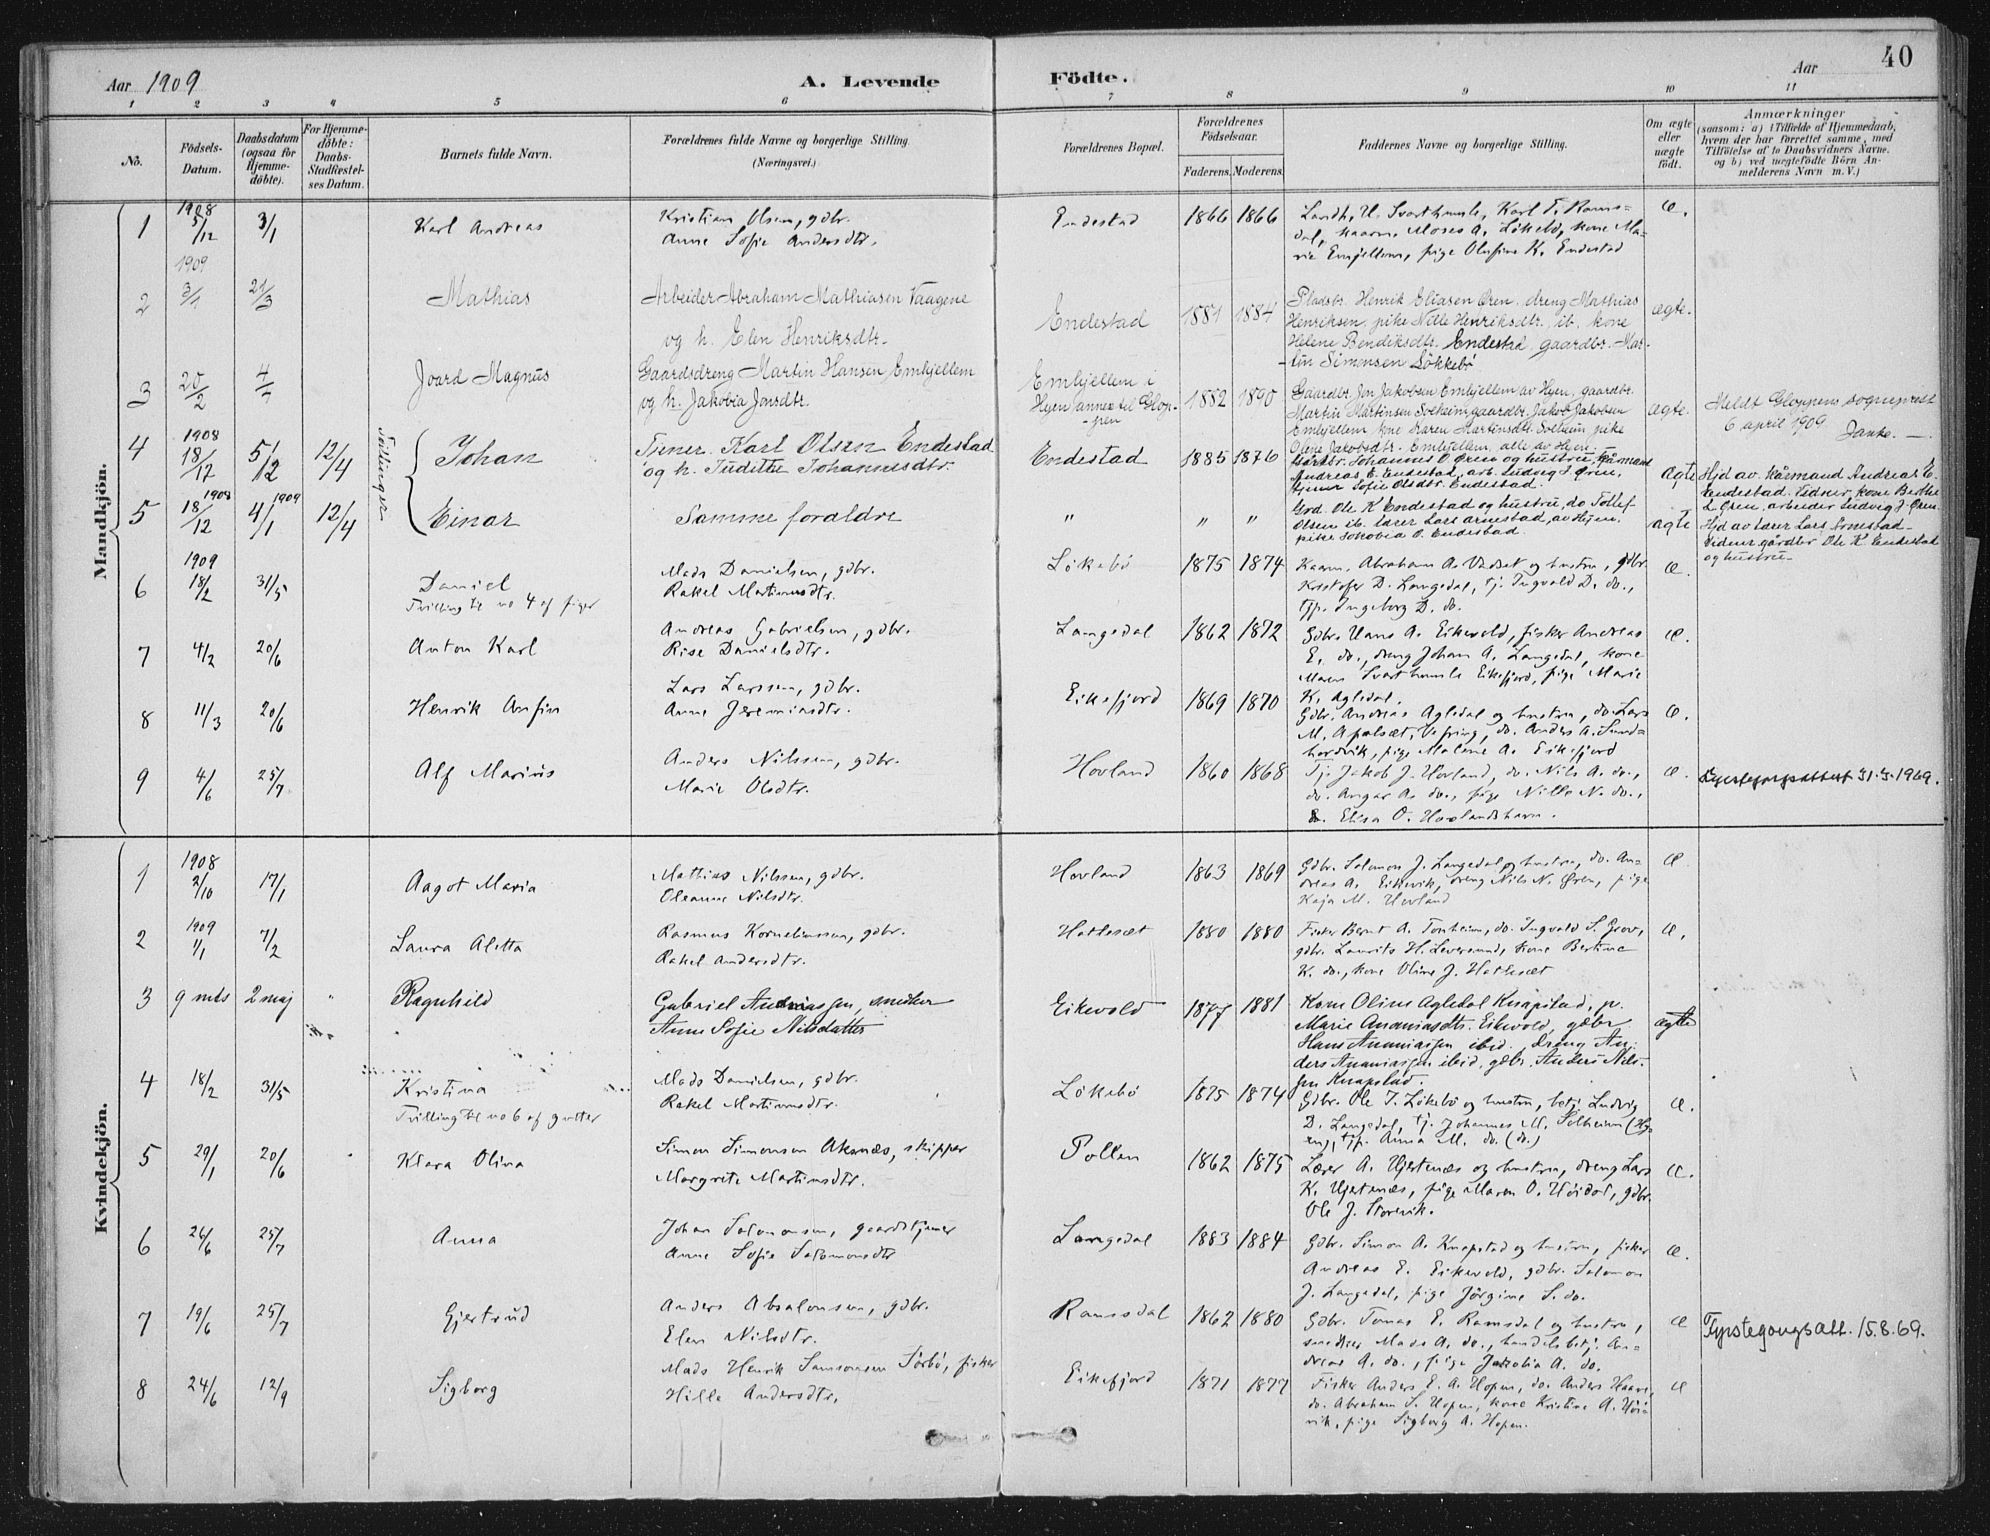 Aar 1909
A. Levende Födte.
Aar
40
1 2 3 4 5 6 7 8 9 10 11
No.
Födsels-Datum.
Daabsdatum (ogsaa for Hjemme-döbte).
For Hjemme-döbte: Daabs-Stadfæstel-ses Datum.
Barnets fulde Navn.
Forældrenes fulde Navne og borgerlige Stilling. (Næringsvei.)
Forældrenes Bopæl.
Forældrenes Födselsaar.
Faderens. Moderens.
Faddernes Navne og borgerlige Stilling.
Om ægte eller uægte födt.
Anmærkninger
(saasom: a) i Tilfælde af Hjemmedaab, hvem der har forrettet samme, med Tilföielse af to Daabsvidners Navne, og b) ved uægtefödte Börn Anmelderens Navn m. V.)
Mandkjön.
1 1908 5/12 3/1 Karl Andreas
Kristian Olsen, gdbr.
Anne Sofie Andersdtr.
Endestad 1866 1866
Landh. H. Svarthumle, Karl T. Rams-
dal, kaarm. Moses A. Løkebø, kone Ma-
rie Emhjellem, pige Olufine K. Endestad
æ.
2 1909 3/1 21/3 Mathias
Arbeider Abraham Mathiasen Vaagene
og h. Elen Henriksdtr.
Endestad 1881 1884
Pladsbr. Henrik Eliasen Øren, dreng Mathias
Henriksen, pike Nille Henriksdtr. ib. kone
Helene Bendiksdtr. Endestad, gaardbr. Mar-
tin Simonsen Løkkebø
ægte.
3 20/2 4/4 Joard Magnus
Gaardsdreng Martin Hansen Emhjellem
og h. Jakobia Jonsdtr.
Emhjellem i
Hyen annex til Glop-
pen
1882 1890
Gaardbr. Jon Jakobsen Emhjellem av Hyen, gaardbr.
Martin Martinsen Solheim, gaardbr. Jakob Jakobsen
Emhjellem, kone Karen Martinsdtr. Solheim, pike
Oline Jakobsdtr. Emhjellem, alle av Hyen
ægte.
Meldt Gloppens sogneprest
6 april 1909.
Tvillinger
4 1908 18/12 5/12 12/4 Johan
Tjener Karl Olsen Endestad
og h. Judithe Johannesdtr.
Endestad 1885 1876
Gårdbr. Johannes O. Øren og hustru, kårmand
Andreas E. Endestad, arb. Ludvig J. Øren,
tjener Sofie Olsdtr. Endestad.
ægte
Hjd av kårmand Andreas E.
Endestad. Vidner, kone Berthe
L. Øren, arbeider Ludvig J. Øren
5 18/12 1908 4/1 1909 12/4 Einar
Samme foraldre
" " "
Grd. Ole K Endestad og hustru, do Tollef
Olsen ib. lærer Lars Arnestad, av Hyen,
pike Jakobia O. Endestad.
ægte
Hjd av lærer Lars Arnestad
Vidner gårdbr Ole K Endestad
og hustru
6 1909 18/2 31/5 Daniel
Tvilling til no 4 af piger
Mads Danielsen, gdbr.
Rakel Martinusdtr.
Løkebø 1875 1874
Kaarm. Abraham A. Vadset og hustru, gdbr.
Kristofer D. Langedal, tj. Ingvald D. do.,
tjp. Ingeborg D. do.
æ.
7 4/2 20/6 Anton Karl
Andreas Gabrielsen, gdbr.
Rise Danielsdtr.
Langedal 1862 1872
Gdbr. Hans A. Eikevold, fisker Andreas
E. do., dreng Johan A. Langedal, kone
Maren Svarthumle Eikefjord, pige Marie
K. Agledal.
æ.
8 11/3 20/6 Henrik Anfin
Lars Larssen, gdbr.
Anne Jeremiasdtr.
Eikefjord 1869 1870
Gdbr. Andreas Agledal og hustru, do. Lars
M. Apalsæt, Vefring, do. Anders A. Sund-
hordvik, pige Malene A. Eikefjord
æ.
9 4/6 25/7 Alf Marius
Anders Nilssen, gdbr.
Marie Olsdtr.
Hovland 1860 1868
Tj. Jakob J. Hovland, do. Nils A. do.,
do. Ansgar A. do., pige Nille N. do.,
do. Elisa O. Hovlandshavn.
æ.
1969.
Kvindekjön.
1 1908 2/10 17/1 Aagot Maria
Mathias Nilssen, gdbr.
Oleanne Nilsdtr.
Hovland 1863 1869
Gdbr. Salomon J. Langedal og hustru, do. An-
dreas A. Eikevik, dreng Nils N. Øren, pige
Kaja M. Hovland
æ
2 1909 1/1 7/2 Laura Aletta
Rasmus Korneliussen, gdbr.
Rakel Andersdtr.
Hatleset 1880 1880
Fisker Bernt A. Tonheim, do. Ingvald S. Grov,
gdbr. Laurits H. Leversund, kone Bertine
K. do., kone Oline J. Hatleset
æ.
3 9 mts 2 maj " Ragnhild
Gabriel Ananiassen, snedker
Anne Sofie Nilsdatter
Eikevold 1877 1881
Kone Oline Agledal Knapstad, p.
Marie Ananiasdtr. Eikevold, gdbr
Hans Ananiassen ibid., dreng An-
ders Ananiassen ibid, gdbr. Anders Nils-
sen Knapstad.
ægte
4 18/2 31/5 Kristina
Tvilling til no 6 af gutter
Mads Danielsen, gdbr.
Rakel Martinusdtr.
Løkebø 1875 1874
Gdbr. Ole T. Løkebø og hustru, betj. Ludvig
D. Langedal, tj. Johannes M. Solheim (Hy-
en), tjp. Anna M. do. (do.)
æ.
5 29/1 20/6 Klara Olina
Simon Simonsen Aksnæs, skipper
Margrete Martinsdtr.
Pollen 1862 1875
Lærer A. Hjertenæs og hustru, dreng Lars
K. Hjertenæs, pige Maren O. Høidal, gdbr.
Ole J. Storevik.
æ.
6 26/6 25/7 Anna
Johan Salomonsen, gaardstjener
Anne Sofie Salomonsdtr
Langedal 1883 1884
Gdbr. Simon A. Knapstad og hustru, fisker
Andreas E. Eikevold, gdbr. Salomon
J. Langedal, pige Jørgine S. do.
æ.
7 19/6 25/7 Gjertrud
Anders Absalonsen, gdbr.
Elen Nilsdtr.
Ramsdal 1862 1880
Gdbr. Tomas E. Ramsdal og hustru,
snedker Mads A. do., handelsbetj. An-
dreas A. do., pige Jakobia A. do.
æ
Fyrstegangsatt. 15.8.69.
8 24/6 12/9 Sigborg
Mads Henrik Samsonsen Sørbø, fisker
Hille Andersdtr.
Eikefjord 1871 1877
Fisker Anders E. A. Hopen, do. Anders Haave,
do. Abraham S. Hopen, kone Kristine A. Høi-
vik, pige Sigborg A. Hopen.
æ